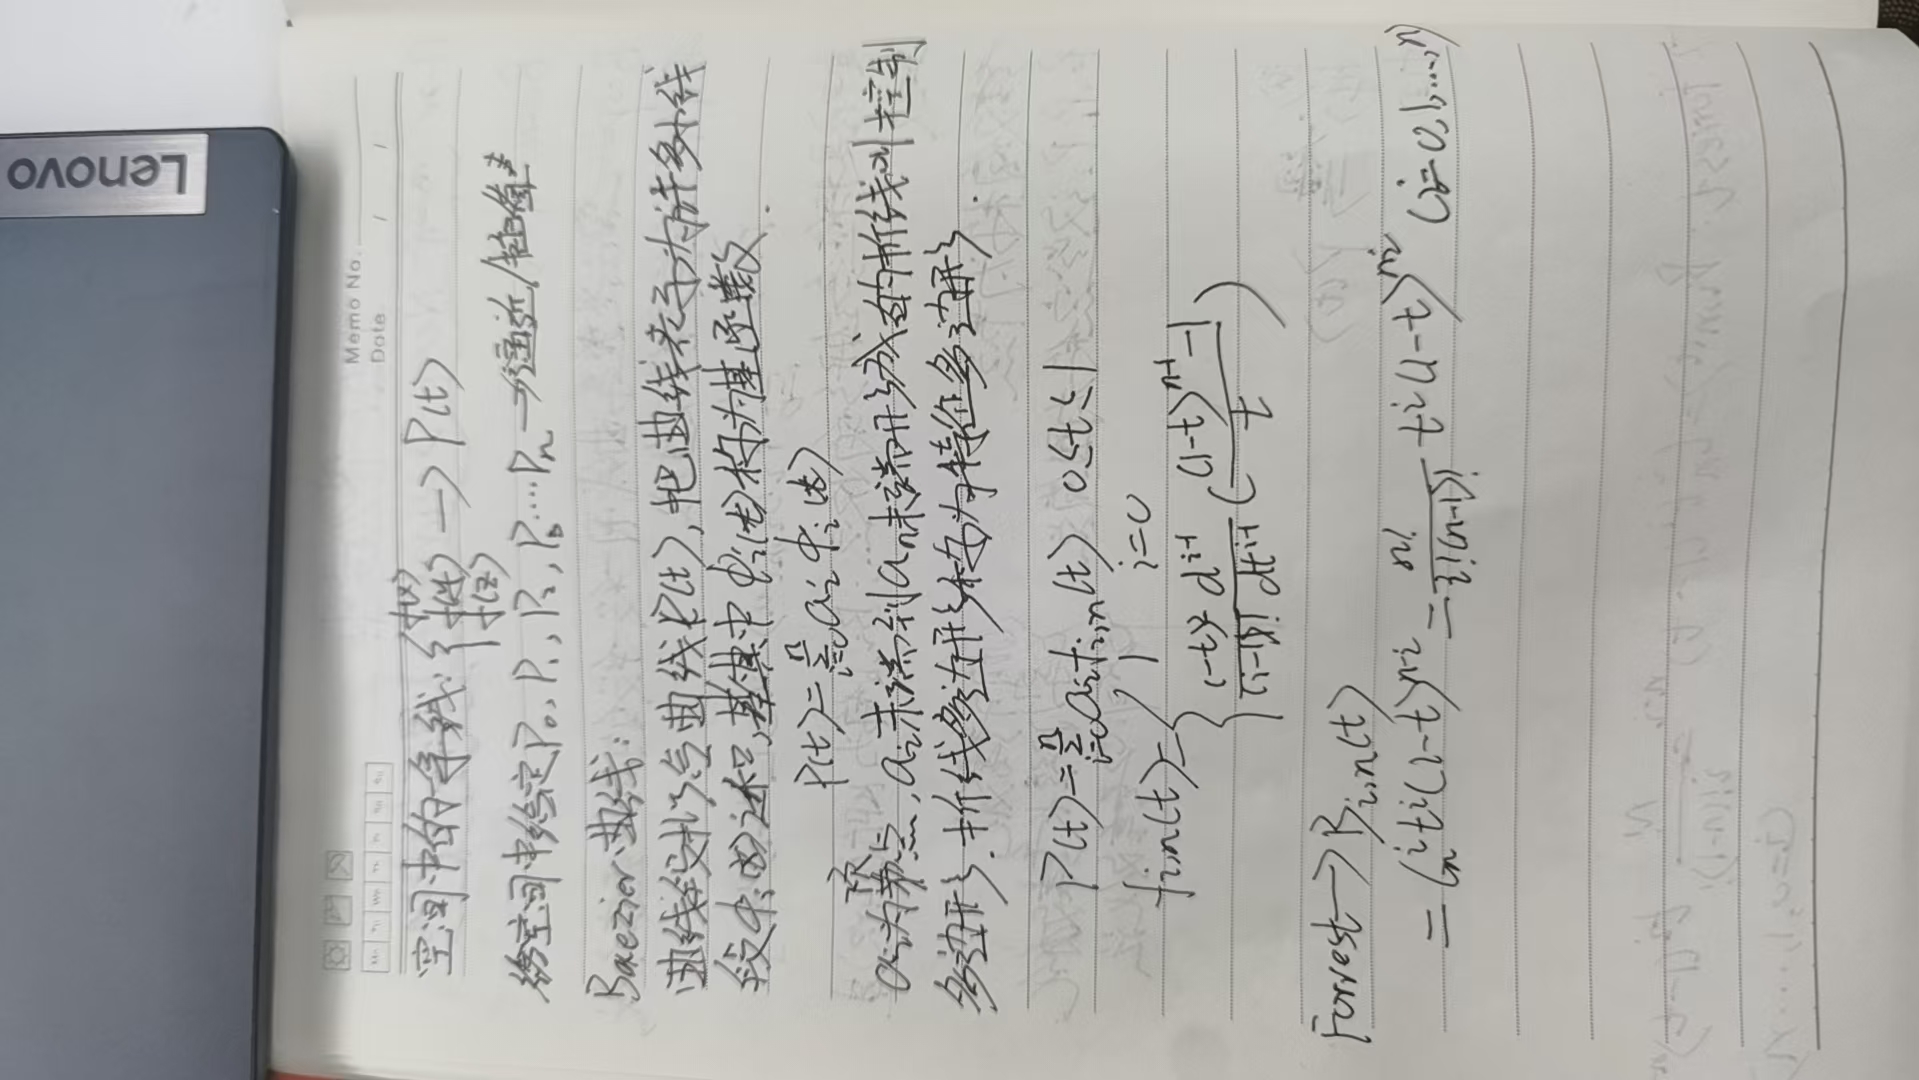 Lenovo
Memo No.
Date / /
空间中的一条线: { f(x) f(y) f(z) → P(t)
给空间中给定P₀, P₁, P₂, P₃…Pₙ → 逼近/插值
Baezier曲线:
曲线段拟合曲线P(t), 把曲线表示为许多小线
段φᵢ(t)之和, 其中φᵢ(t)称为基函数.
P(t)=Σⁿᵢ₌₀ aᵢφᵢ(t)
aᵢ为顶点, aᵢ末端到aₙ末端形成的折线叫控制
多边形. 折线多边形称为特征多边形.
P(t)=Σⁿᵢ₌₀ aᵢfᵢ,ₙ(t) 0≤t≤1
fᵢ,ₙ(t)={ 1 i=0
(-t)ⁱ/(i-1)! dⁱ⁻¹/dtⁱ⁻¹ ((1-t)ⁿ⁻¹-1 / t)
Forrest → Bᵢ,ₙ(t)
= Cₙⁱtⁱ(1-t)ⁿ⁻ⁱ = n!/i!(n-1)! tⁱ(1-t)ⁿ⁻ⁱ (i=0,1,…,n)